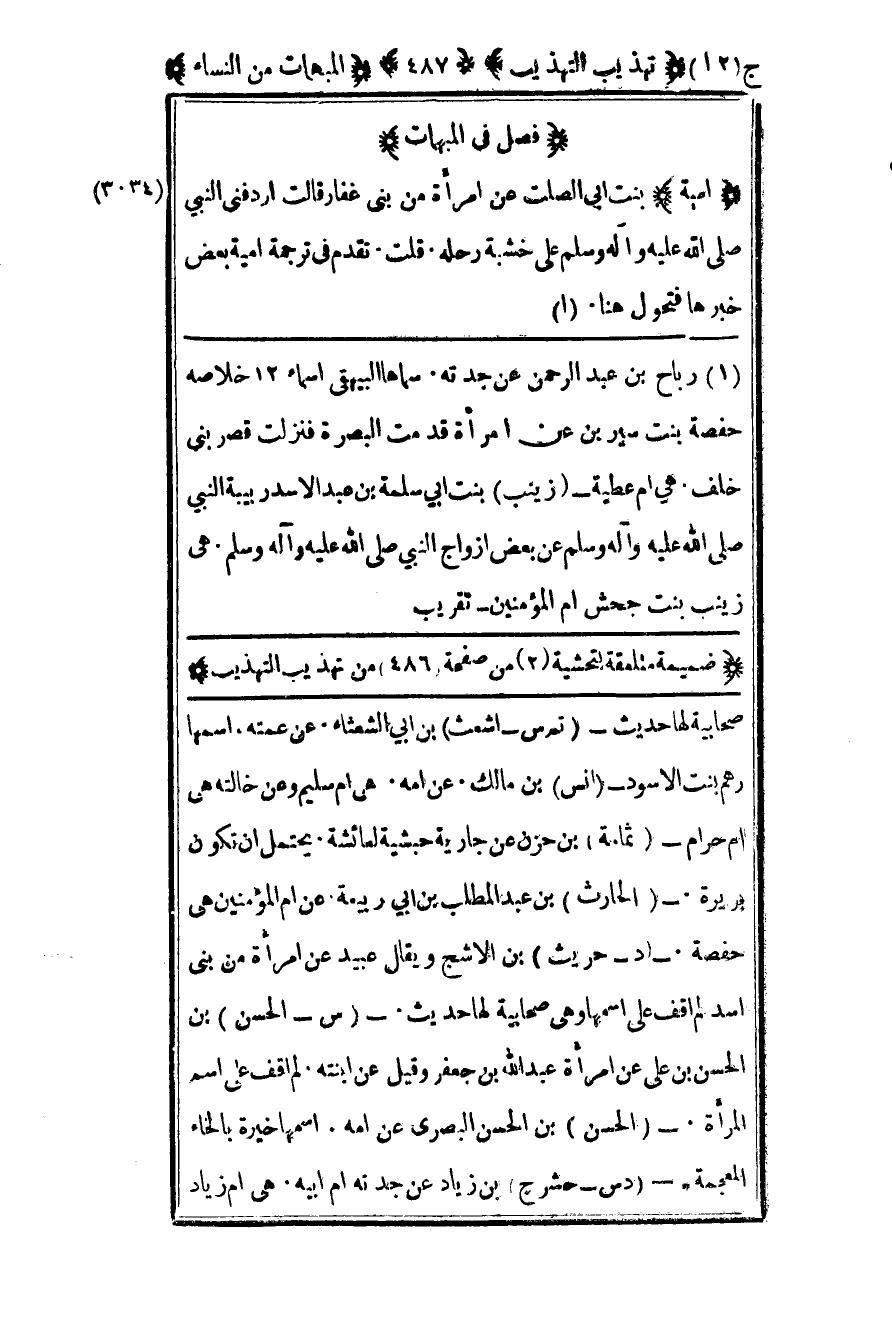 ج(١٢) ﴿ تهذيب التهذيب ﴾ ﴿ ٤٨٧ ﴾ ﴿ المبهمات من النساء ﴾
﴿ فصل فى المبهمات ﴾
﴿ امية ﴾ بنت ابى الصلت عن امرأة من بنى غفار قالت اردفنى النبي (٣٠٣٤)
صلى الله عليه وآله وسلم على خشبة رحله · قلت · تقدم فى ترجمة امية بعض
خبرها فتحول هنا · (١)
(١) رباح بن عبد الرحمن عن جدته · سماها البيهقى اسماء ١٢ خلاصه
حفصة بنت سيرين عن امرأة قدمت البصرة فنزلت قصر بنى
خلف · هي ام عطية ــ (زينب) بنت ابى سلمة بن عبد الاسد ربيبة النبي
صلى الله عليه وآله وسلم عن بعض ازواج النبي صلى الله عليه وآله وسلم · هى
زينب بنت جحش ام المؤمنين ــ تقريب
﴿ ضميمة متلصقة لتحشية (٢) من صفحة (٤٨٦) من تهذيب التهذيب ﴾
صحابية لها حديث ــ ( تم س ــ اشعث) بن ابى الشعثاء · عن عمته · اسمها
رهم بنت الاسود ــ (انس) بن مالك · عن امه · هى ام سليم وعن خالته هى
ام حرام ــ ( ثمامة ) بن حزن عن جارية حبشية لعائشة · يحتمل ان تكون
بريرة · ــ ( الحارث ) بن عبد المطلب بن ابي ربيعة · عن ام المؤمنين هى
حفصة · ــ (د ــ حريث ) بن الاشج ويقال عبيد عن امرأة من بنى
اسد لم اقف على اسمها وهى صحابية لها حديث · ــ ( س ــ الحسن ) بن
الحسن بن على عن امرأة عبد الله بن جعفر وقيل عن ابنته · لم اقف على اسم
المرأة · ــ ( الحسن ) بن الحسن البصرى عن امه · اسمها خيرة بالخاء
المعجمة · ــ (د س ــ حشرج) بن زياد عن جدته ام ابيه · هى ام زياد